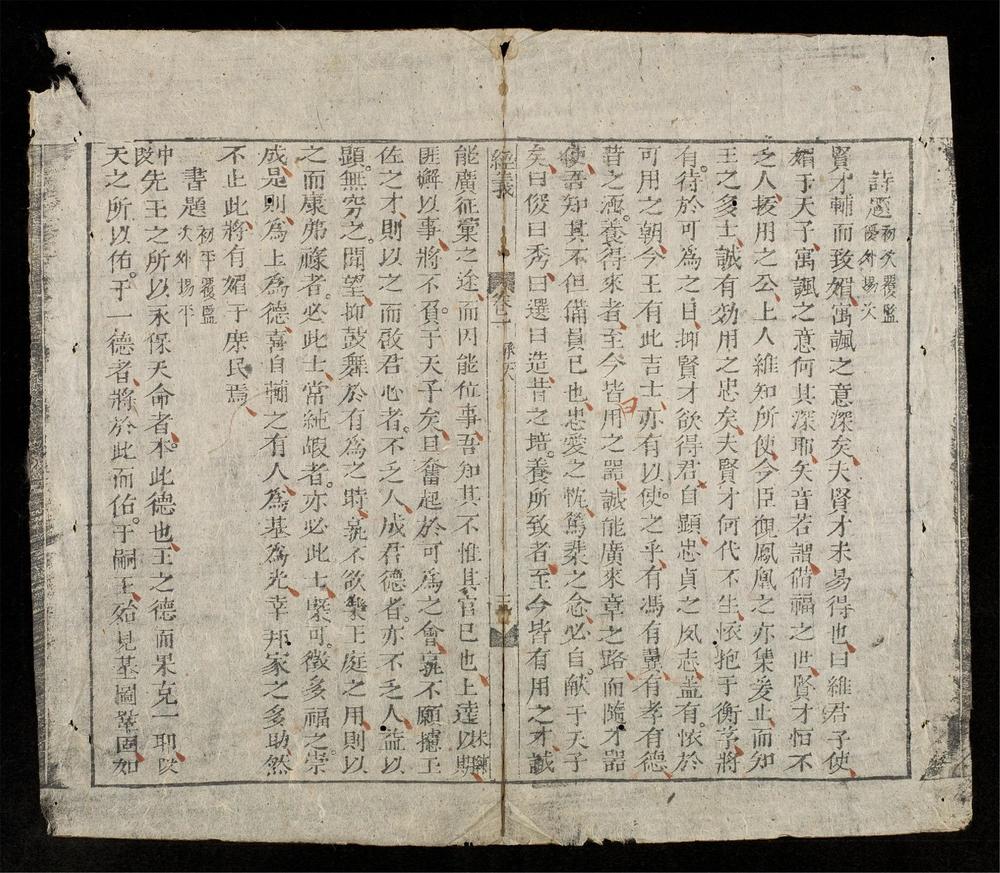 詩題 初次覆監 優外場次
賢才輔而致媚寓諷之意深矣夫賢才未易得也曰維君子使
媚于天子寓諷之意何其深耶矢音若謂備福之世賢才恒不
乏人援用之公上人維知所使今臣覩鳳凰之亦集爰止而知
王之多士誠有効用之忠矣夫賢才何代不生懷抱于衡茅將
有待於可為之日抑賢才欲得君自顯忠貞之夙志盖有懷於
可用之朝今王有此吉士亦有以使之乎有馮有翼有孝有德
昔之涵養得來者至今皆用之噐誠能廣來章之路而隨才器
使吾知其不但備員已也忠愛之忱篤棐之念必自献于天子
矣曰俊曰秀曰選曰造昔之培養所致者至今皆有用之才誠
經義 卷二
能廣征彙之途而因能位事吾知其不惟其官已也上達以期
匪懈以事將不負于天子矣且奮起於可為之會孰不願攄王
佐之才則以之而啟君心者不乏人成君德者亦不乏人益以
顯無窮之聞望抑鼓舞於有為之時孰不欲集王庭之用則以
之而康弟祿者必此士常純嘏者亦必此士槩可徵多福之崇
成是則為上為德喜自輔之有人為基為光幸邦家之多助然
不止此將有媚于庶民焉
書題 初平覆監 次外場平
中段先王之所以永保天命者本此德也王之德而果克一耶以
天之所以佑于一德者將於此而佑于嗣王始見基圖鞏固如